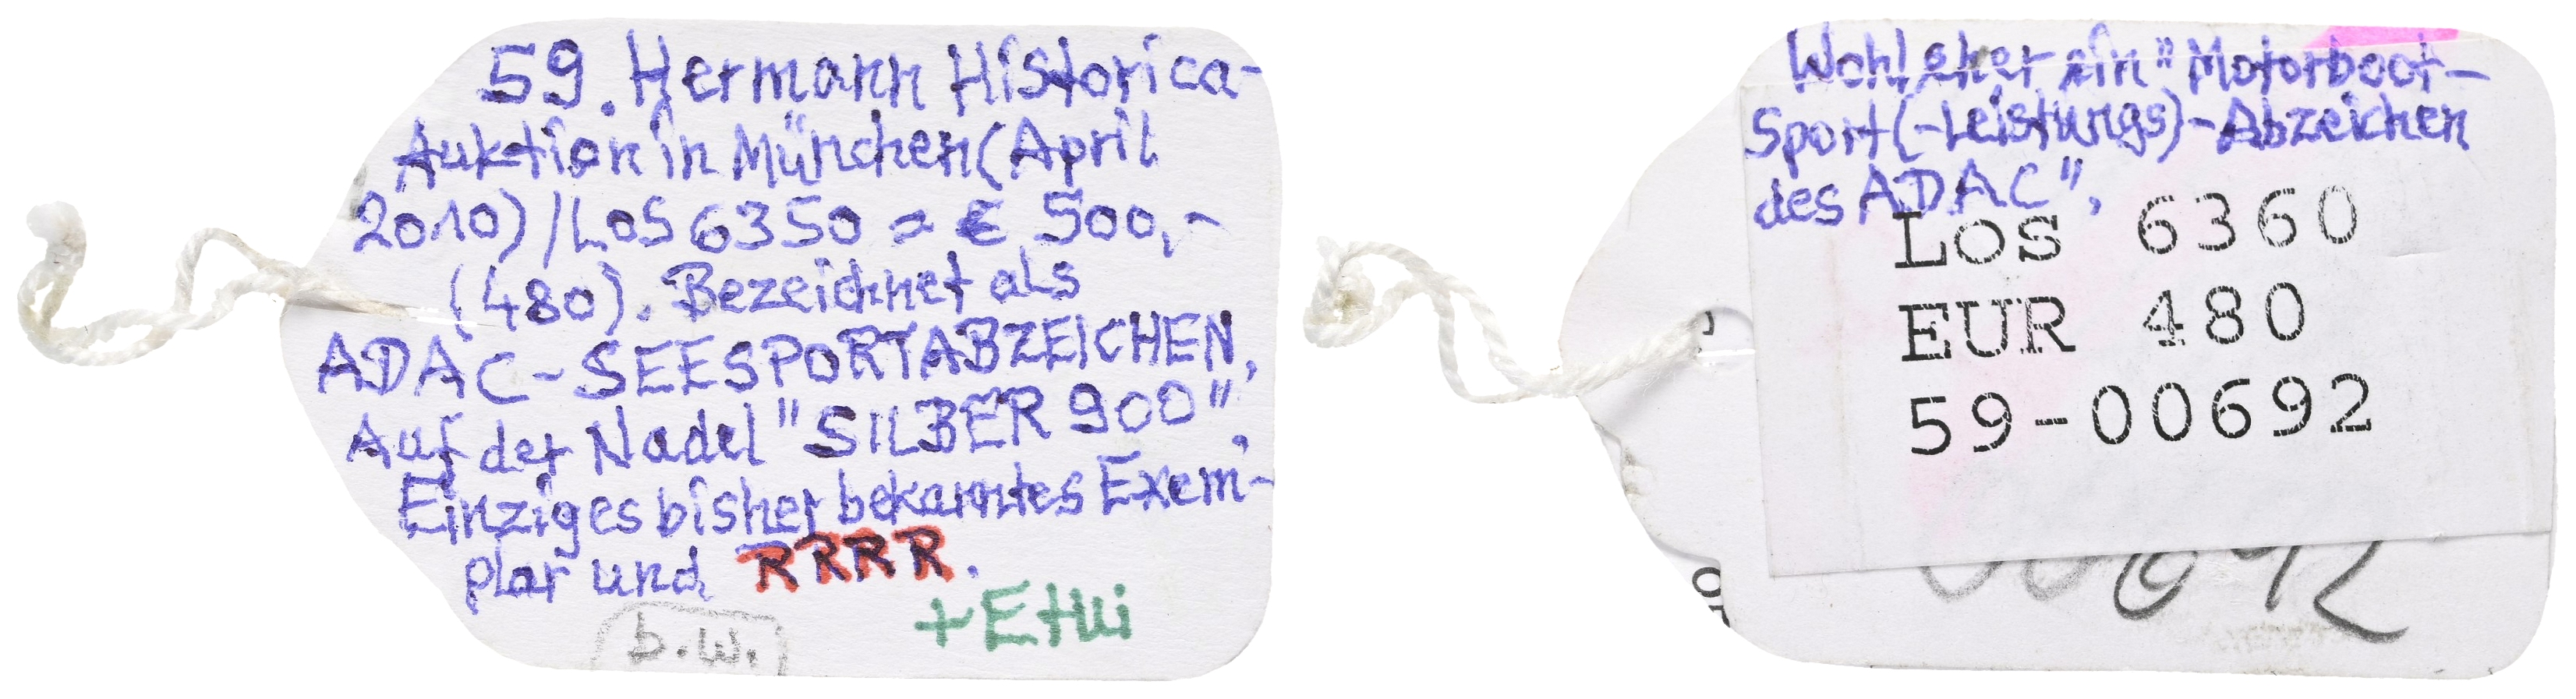 59. Hermann Historica-
Auktion in München (April
2010) / Los 6350 = € 500,-
(480). Bezeichnet als
ADAC-SEESPORTABZEICHEN,
Auf der Nadel "SILBER 900".
Einziges bisher bekanntes Exem-
plar und RRRR.
+Etui
b.w.
Wohl eher ein "Motorboot-
Sport(-Leistungs)-Abzeichen
des ADAC".
LOS 6360
EUR 480
59-00692
00692